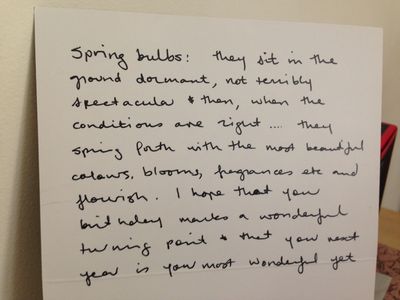 Spring bulbs: they sit in the
ground dormant, not terribly
spectacular & then, when the
conditions are right.... they
spring forth with the most beautiful
colours, blooms, fragrances etc and
flourish. I hope that your
birthday marks a wonderful
turning point & that your next
year is your most wonderful yet